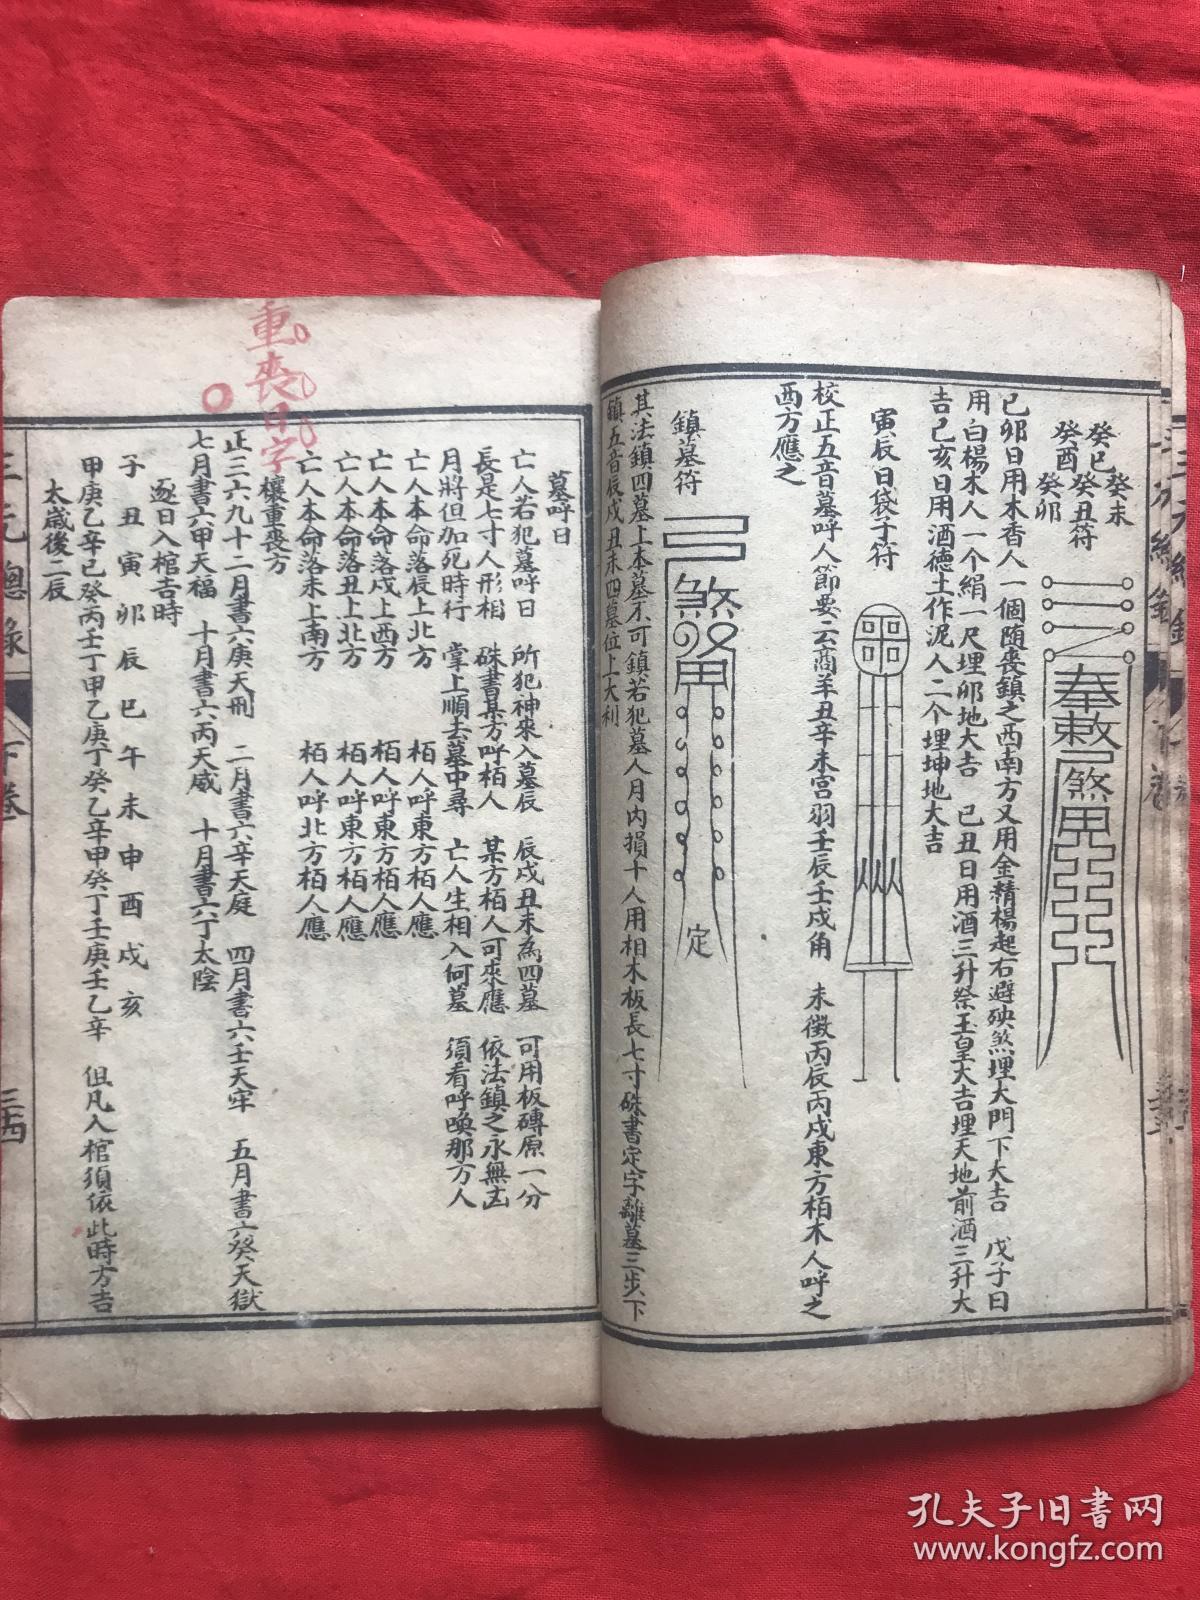 癸巳 癸未
癸酉 癸丑符
癸卯
奉敕煞
己卯日用木香人一個随喪鎮之西南方又用金精楊起右避殃煞埋大門下大吉 戊子日
用白楊木人一个絹一尺埋卯地大吉 己丑日用酒三升祭玉皇大吉埋天地前酒三升大
吉己亥日用酒德土作泥人二个埋坤地大吉
寅辰日袋子符
校正五音墓呼人節要云商羊丑辛未宫羽壬辰壬戌角 未徵丙辰丙戌東方栢木人呼之
西方應之
鎮墓符
煞
定
其法鎮四墓上本墓不可鎮若犯墓人月内損十人用相木板長七寸硃書定字離墓三步下
鎮五音辰戌丑未四墓位上大利
墓呼日
亡人若犯墓呼日 所犯神來入墓辰 辰戌丑未為四墓 可用板磚原一分
長是七寸人形相 硃書某方呼栢人 某方栢人可來應 依法鎮之永無凶
月將但加死時行 掌上順去墓中尋 亡人生相入何墓 須看呼喚那方人
亡人本命落辰上北方 栢人呼東方栢人應
亡人本命落戌上西方 栢人呼東方栢人應
亡人本命落丑上北方 栢人呼東方栢人應
亡人本命落未上南方 栢人呼北方栢人應
禳重喪方
正三六九十二月書六庚天刑 二月書六辛天庭 四月書六壬天牢 五月書六癸天獄
七月書六甲天福 十月書六丙天威 十月書六丁太陰
逐日入棺吉時
子丑寅卯辰巳午未申酉戌亥
甲庚乙辛巳癸丙壬丁甲乙庚丁癸乙辛甲癸丁壬庚壬乙辛 但凡入棺須依此時方吉
太歲後二辰
三元總錄
下卷
三四
重喪日字
孔夫子旧书网
www.kongfz.com